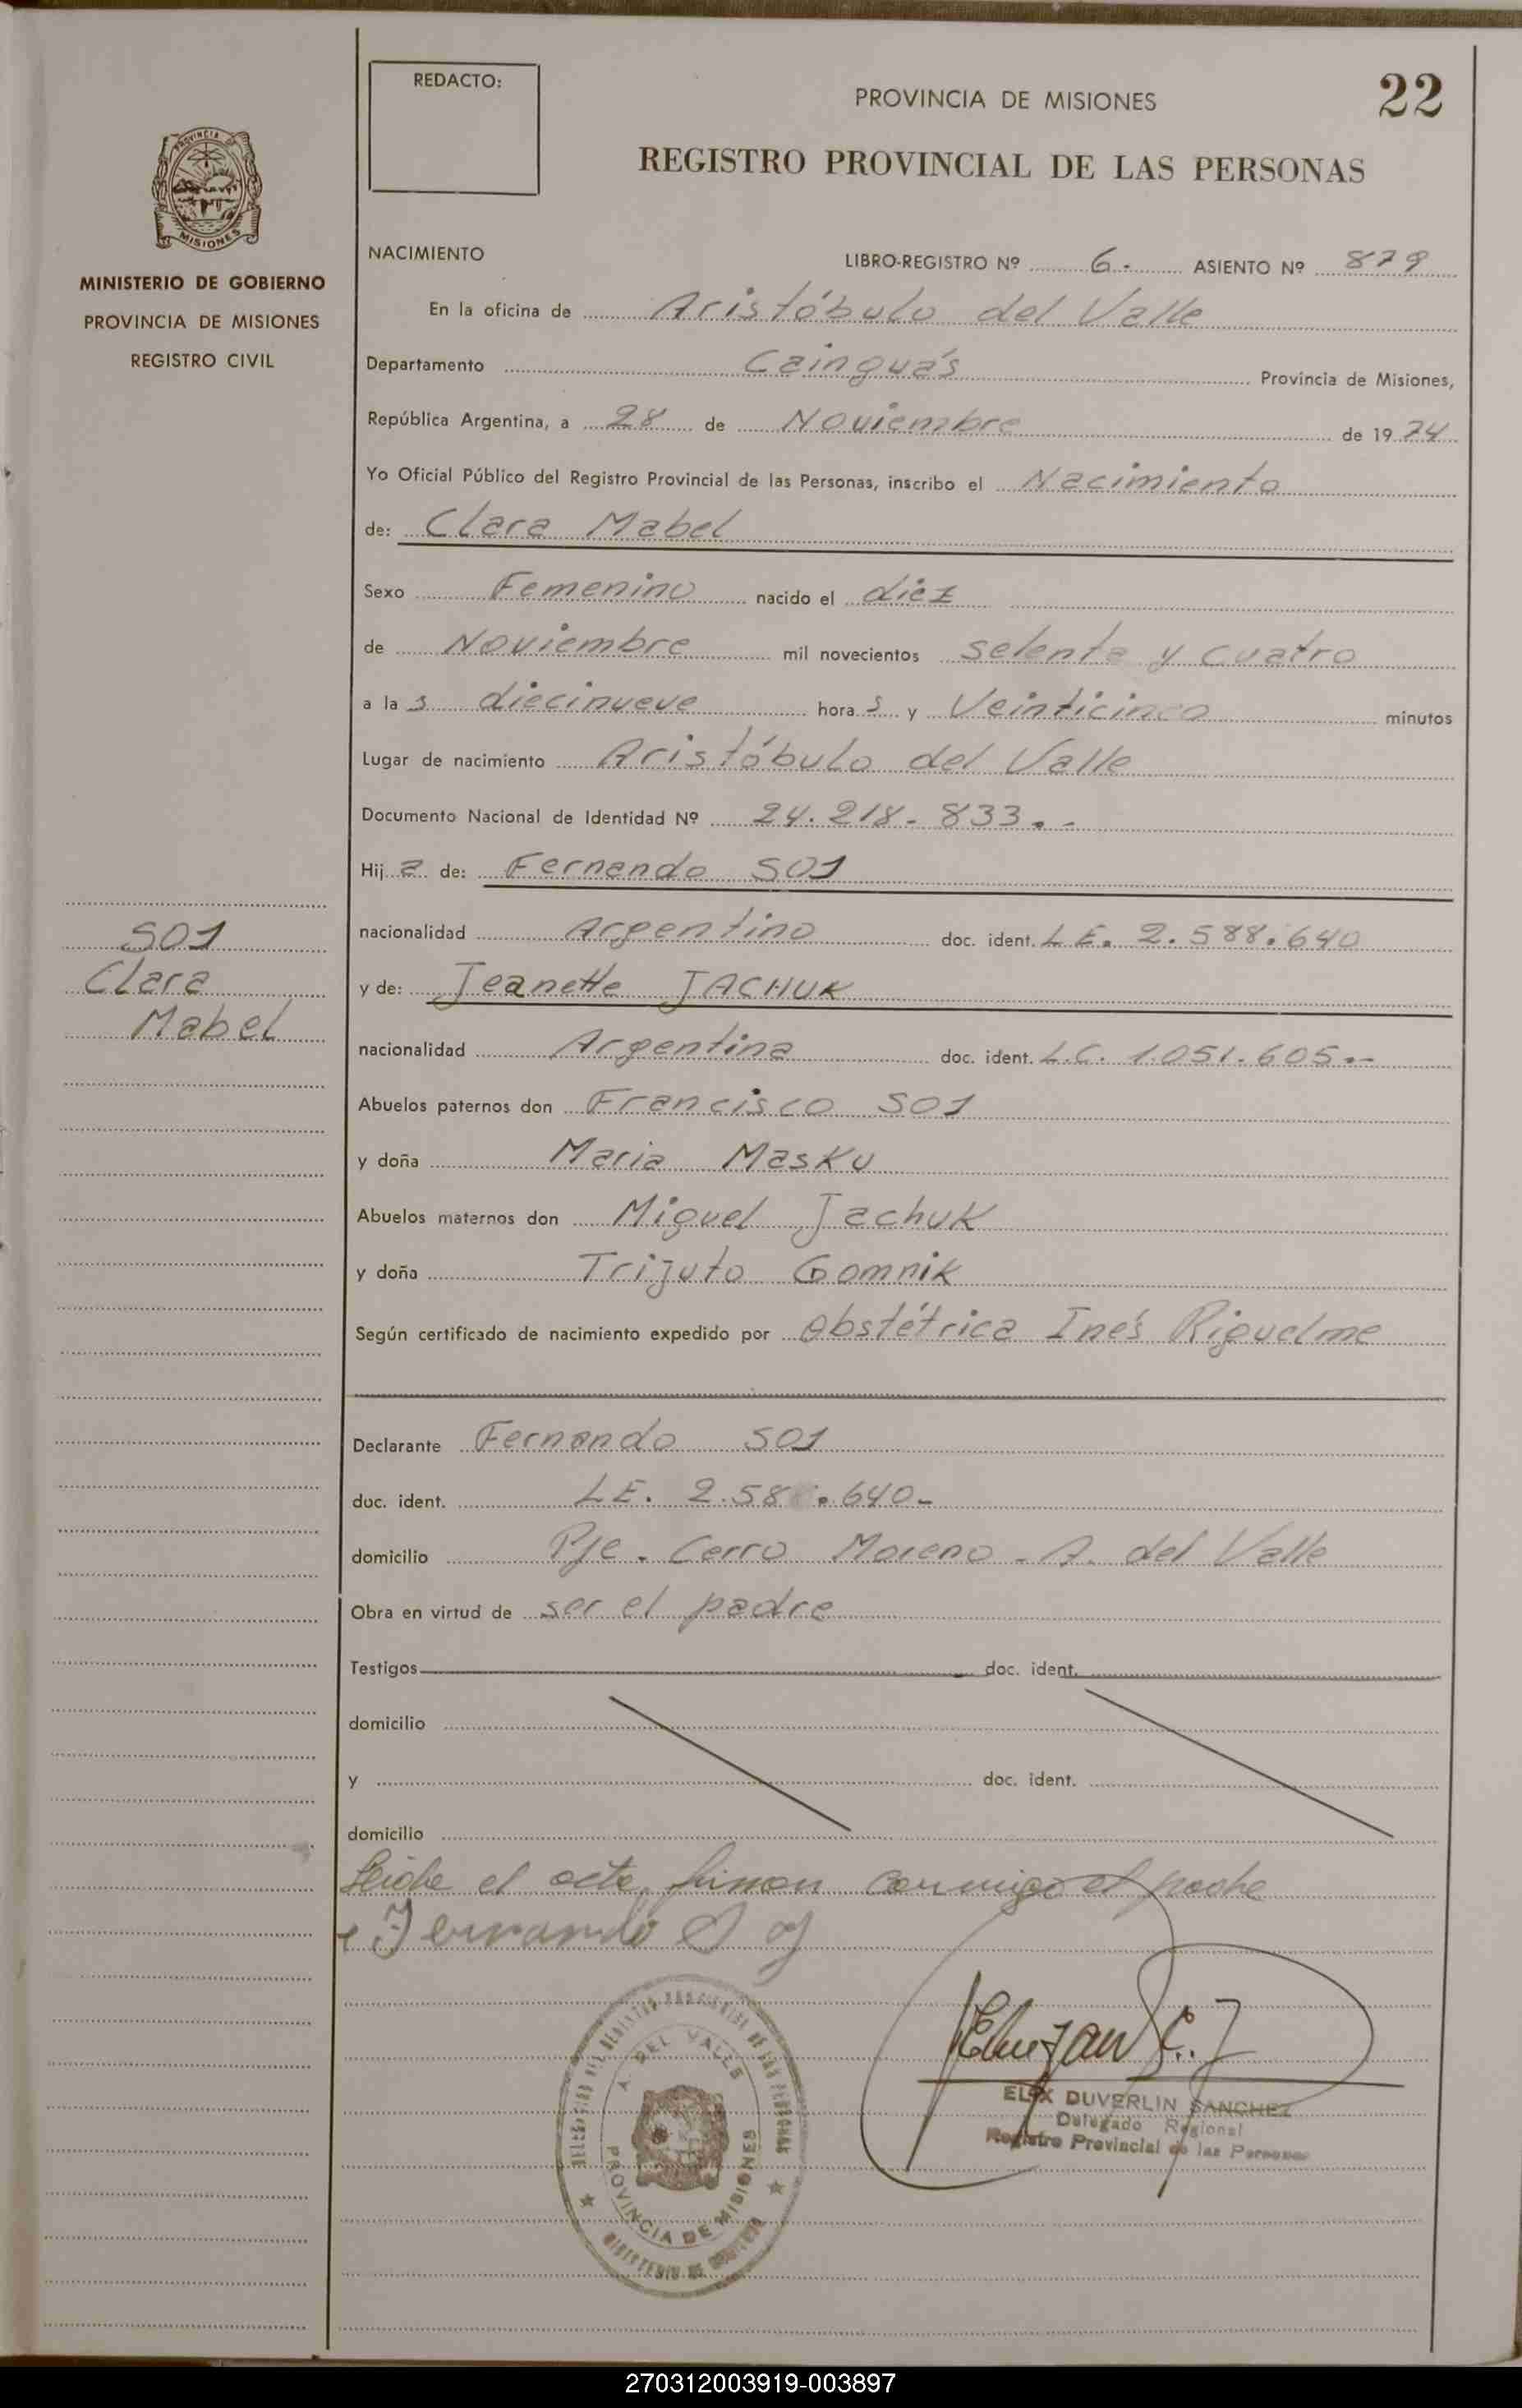 REDACTO:
PROVINCIA DE MISIONES
22
REGISTRO PROVINCIAL DE LAS PERSONAS
PROVINCIA DE
MISIONES
MINISTERIO DE GOBIERNO
PROVINCIA DE MISIONES
REGISTRO CIVIL
NACIMIENTO
LIBRO-REGISTRO Nº 6.- ASIENTO Nº 879
En la oficina de Aristóbulo del Valle
Departamento Cainguás Provincia de Misiones,
República Argentina, a 28 de Noviembre de 19 74
Yo Oficial Público del Registro Provincial de las Personas, inscribo el Nacimiento
de: Clara Mabel
Sexo Femenino nacido el diez
de Noviembre mil novecientos setenta y cuatro
a la s diecinueve hora s y Veinticinco minutos
Lugar de nacimiento Aristóbulo del Valle
Documento Nacional de Identidad Nº 24.218.833.-
Hij a de: Fernando SOJ
nacionalidad Argentino doc. ident. L.E. 2.588.640
y de: Jeanette JACHUK
nacionalidad Argentina doc. ident. L.C. 1.051.605.-
Abuelos paternos don Francisco SOJ
y doña Maria Masku
Abuelos maternos don Miguel Jachuk
y doña Trijuto Gomnik
Según certificado de nacimiento expedido por Obstétrica Inés Riquelme
SOJ
Clara
Mabel
Declarante Fernando SOJ
doc. ident. L.E. 2.58 .640-
domicilio Pje. Cerro Moreno - A. del Valle
Obra en virtud de ser el padre
Testigos doc. ident.
domicilio
y doc. ident.
domicilio
Leida el acta, firman conmigo el padre
Fernando Soj
DELEGACION DEL REGISTRO PROVINCIAL DE LAS PERSONAS
A. DEL VALLE
PROVINCIA DE MISIONES
MINISTERIO DE GOBIERNO
DUVERLIN SANCHEZ
Delegado Regional
Registro Provincial de las Personas
270312003919-003897